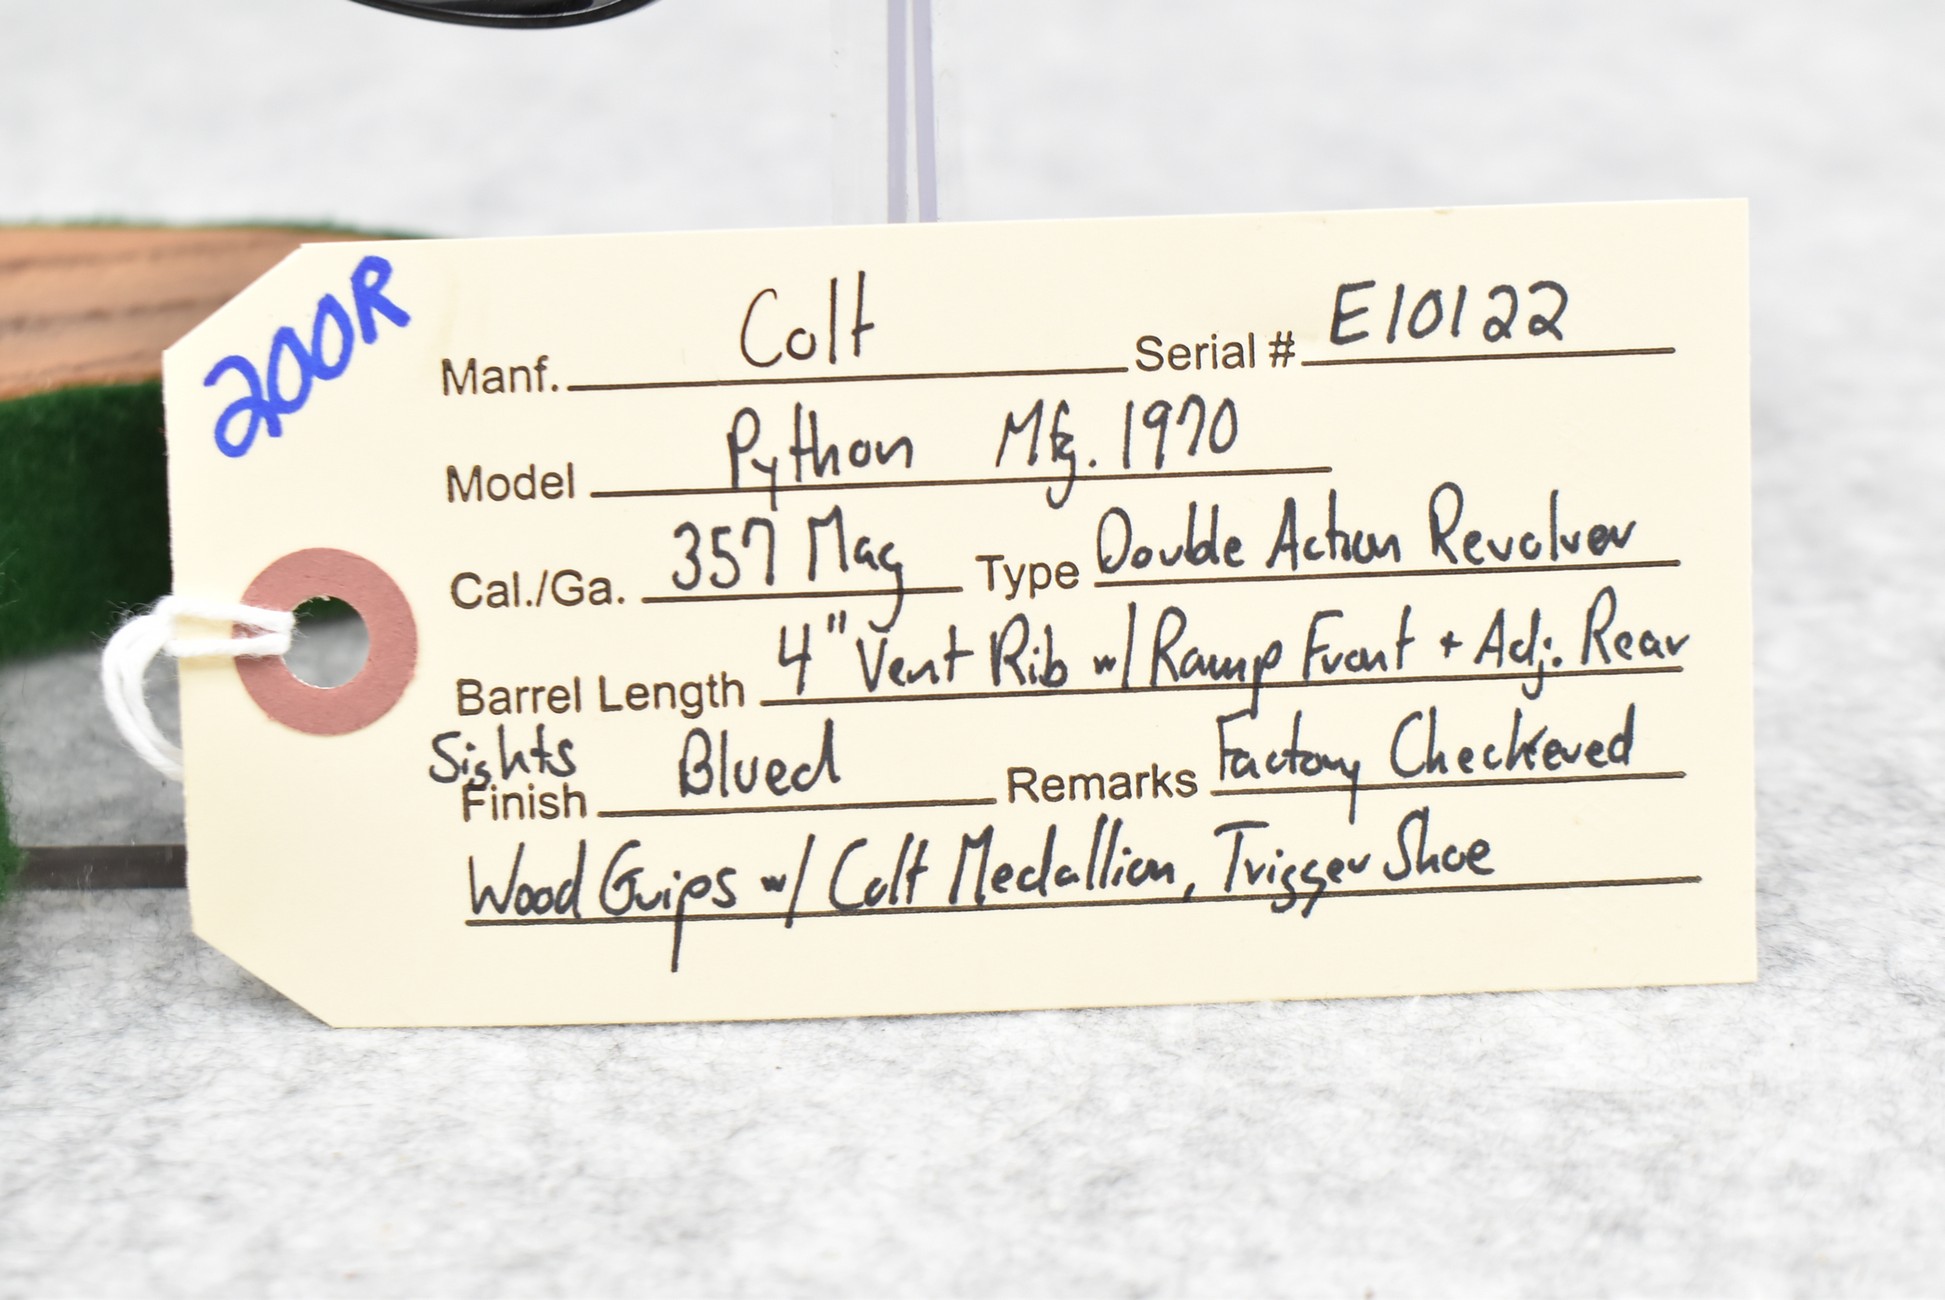 200R
Manf. Colt Serial # E10122
Model Python Mfg. 1970
Cal./Ga. 357 Mag Type Double Action Revolver
Barrel Length 4" Vent Rib w/ Ramp Front + Adj. Rear
Sights
Finish Blued Remarks Factory Checkered
Wood Grips w/ Colt Medallion, Trigger Shoe